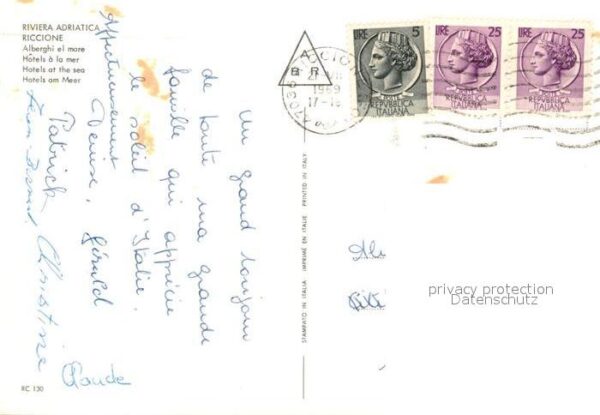 RIVIERA ADRIATICA
RICCIONE
Alberghi el mare
Hôtels à la mer
Hotels at the sea
Hotels am Meer
Un grand bonjour
de toute ma grande
famille qui apprécie
le soleil d'Italie.
Affectueusement
Denise, Gérald
Patrick
Christine
Claude
RC 130
STAMPATO IN ITALIA - IMPRIMÉ EN ITALIE - PRINTED IN ITALY
A
B R
1969
LIRE 5
REPVBBLICA
ITALIANA
LIRE 25
REPVBBLICA
ITALIANA
LIRE 25
REPVBBLICA
ITALIANA
privacy protection
Datenschutz